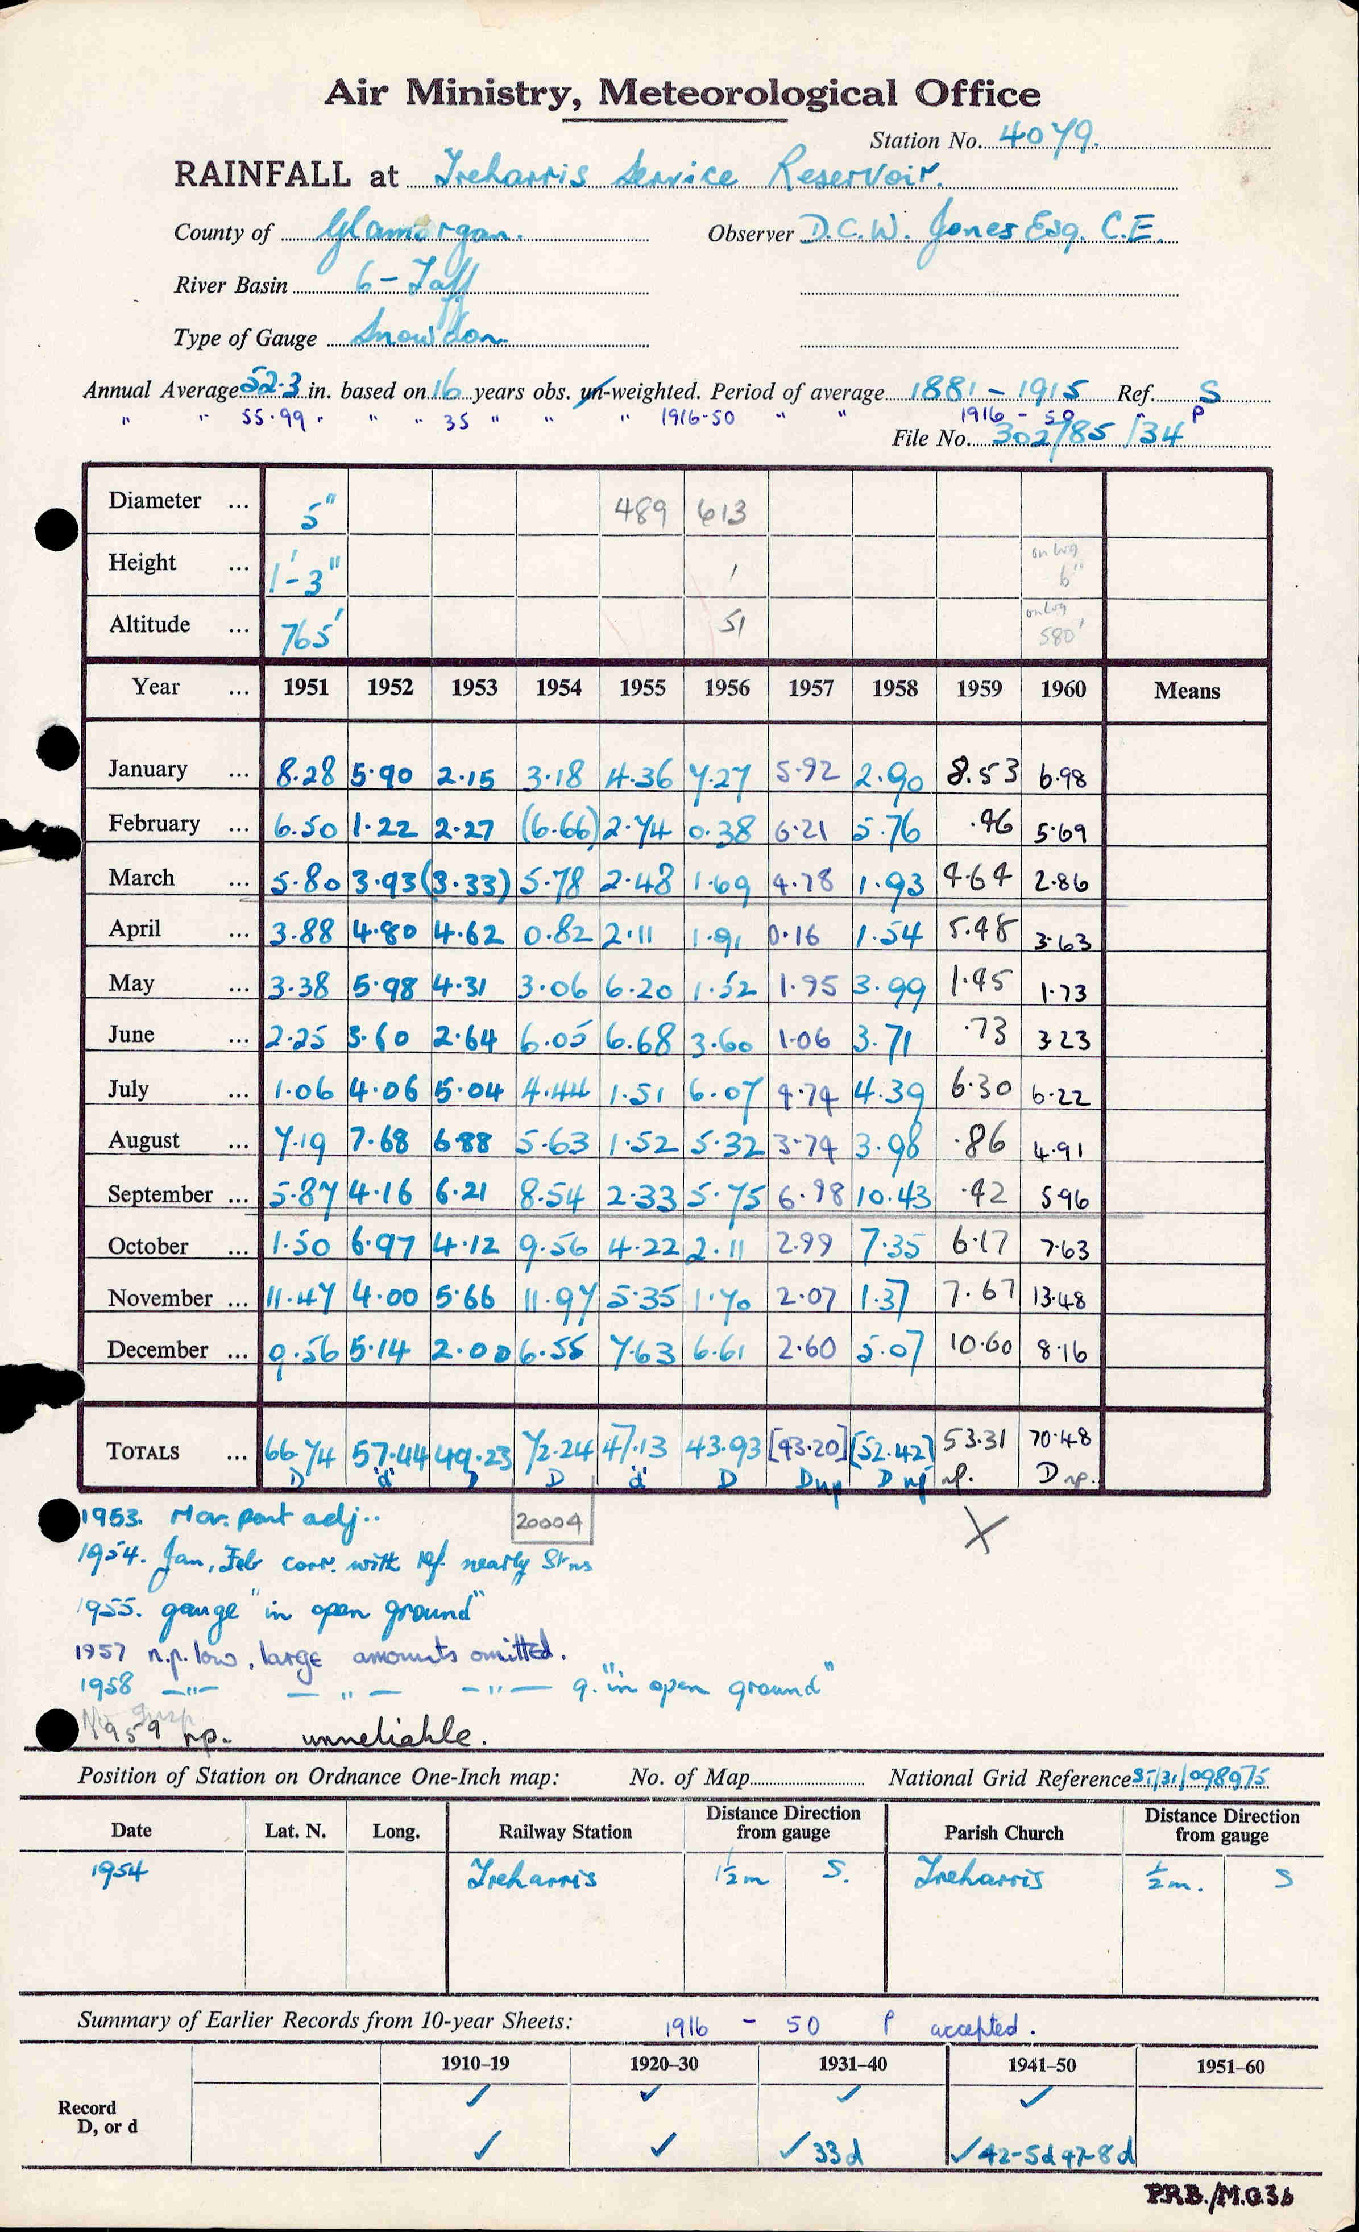 Air Ministry, Meteorological Office
Station No. 4079.
RAINFALL at Treharris Service Reservoir.
County of Glamorgan. Observer D.C.W. Jones Esq. C.E.
River Basin 6 - Taff
Type of Gauge Snowdon
Annual Average 52.3 in. based on 16 years obs. un-weighted. Period of average 1881 - 1915 Ref. S
" " 55.99 " " " 35 " " " 1916-50 " " 1916 - 50 P
File No. 302/85/34
Diameter ... 5" 489 613
Height ... 1'-3" ' on log 6"
Altitude ... 765' 51 on log 580'
Year ... 1951 1952 1953 1954 1955 1956 1957 1958 1959 1960 Means
January ... 8.28 5.90 2.15 3.18 4.36 7.27 5.92 2.90 8.53 6.98
February ... 6.50 1.22 2.27 (6.66) 2.74 0.38 6.21 5.76 .46 5.69
March ... 5.80 3.93 (3.33) 5.78 2.48 1.69 4.78 1.93 4.64 2.86
April ... 3.88 4.80 4.62 0.82 2.11 1.91 0.16 1.54 5.48 3.63
May ... 3.38 5.98 4.31 3.06 6.20 1.52 1.95 3.99 1.45 1.73
June ... 2.25 3.60 2.64 6.05 6.68 3.60 1.06 3.71 .73 3.23
July ... 1.06 4.06 5.04 4.44 1.51 6.07 4.74 4.39 6.30 6.22
August ... 7.19 7.68 6.88 5.63 1.52 5.32 3.74 3.98 .86 4.91
September ... 5.87 4.16 6.21 8.54 2.33 5.75 6.98 10.43 .42 5.96
October ... 1.50 6.97 4.12 9.56 4.22 2.11 2.99 7.35 6.17 7.63
November ... 11.47 4.00 5.66 11.97 5.35 1.70 2.07 1.37 7.67 13.48
December ... 9.56 5.14 2.00 6.55 7.63 6.61 2.60 5.07 10.60 8.16
TOTALS ... 66.74 57.44 49.23 72.24 47.13 43.93 [43.20] [52.42] 53.31 70.48
D 'd' D D 'd' D D np D np np. D np.
1953. Mar. part adj..
20004
X
1954. Jan, Feb corr. with ref. nearby Stns
1955. gauge "in open ground"
1957 n.p. low, large amounts omitted.
1958 —"— — " — —"— g. "in open ground"
1959 np. unreliable.
Position of Station on Ordnance One-Inch map: No. of Map National Grid Reference 31/098975
Date Lat. N. Long. Railway Station Distance Direction from gauge Parish Church Distance Direction from gauge
1954 Treharris 1½m S. Treharris ½m. S
Summary of Earlier Records from 10-year Sheets: 1916 - 50 P accepted.
1910–19 1920–30 1931–40 1941–50 1951–60
Record D, or d ✓ ✓ ✓ ✓
✓ ✓ ✓ 33d ✓ 42-5d 47-8d
P.R.B./M.O.36